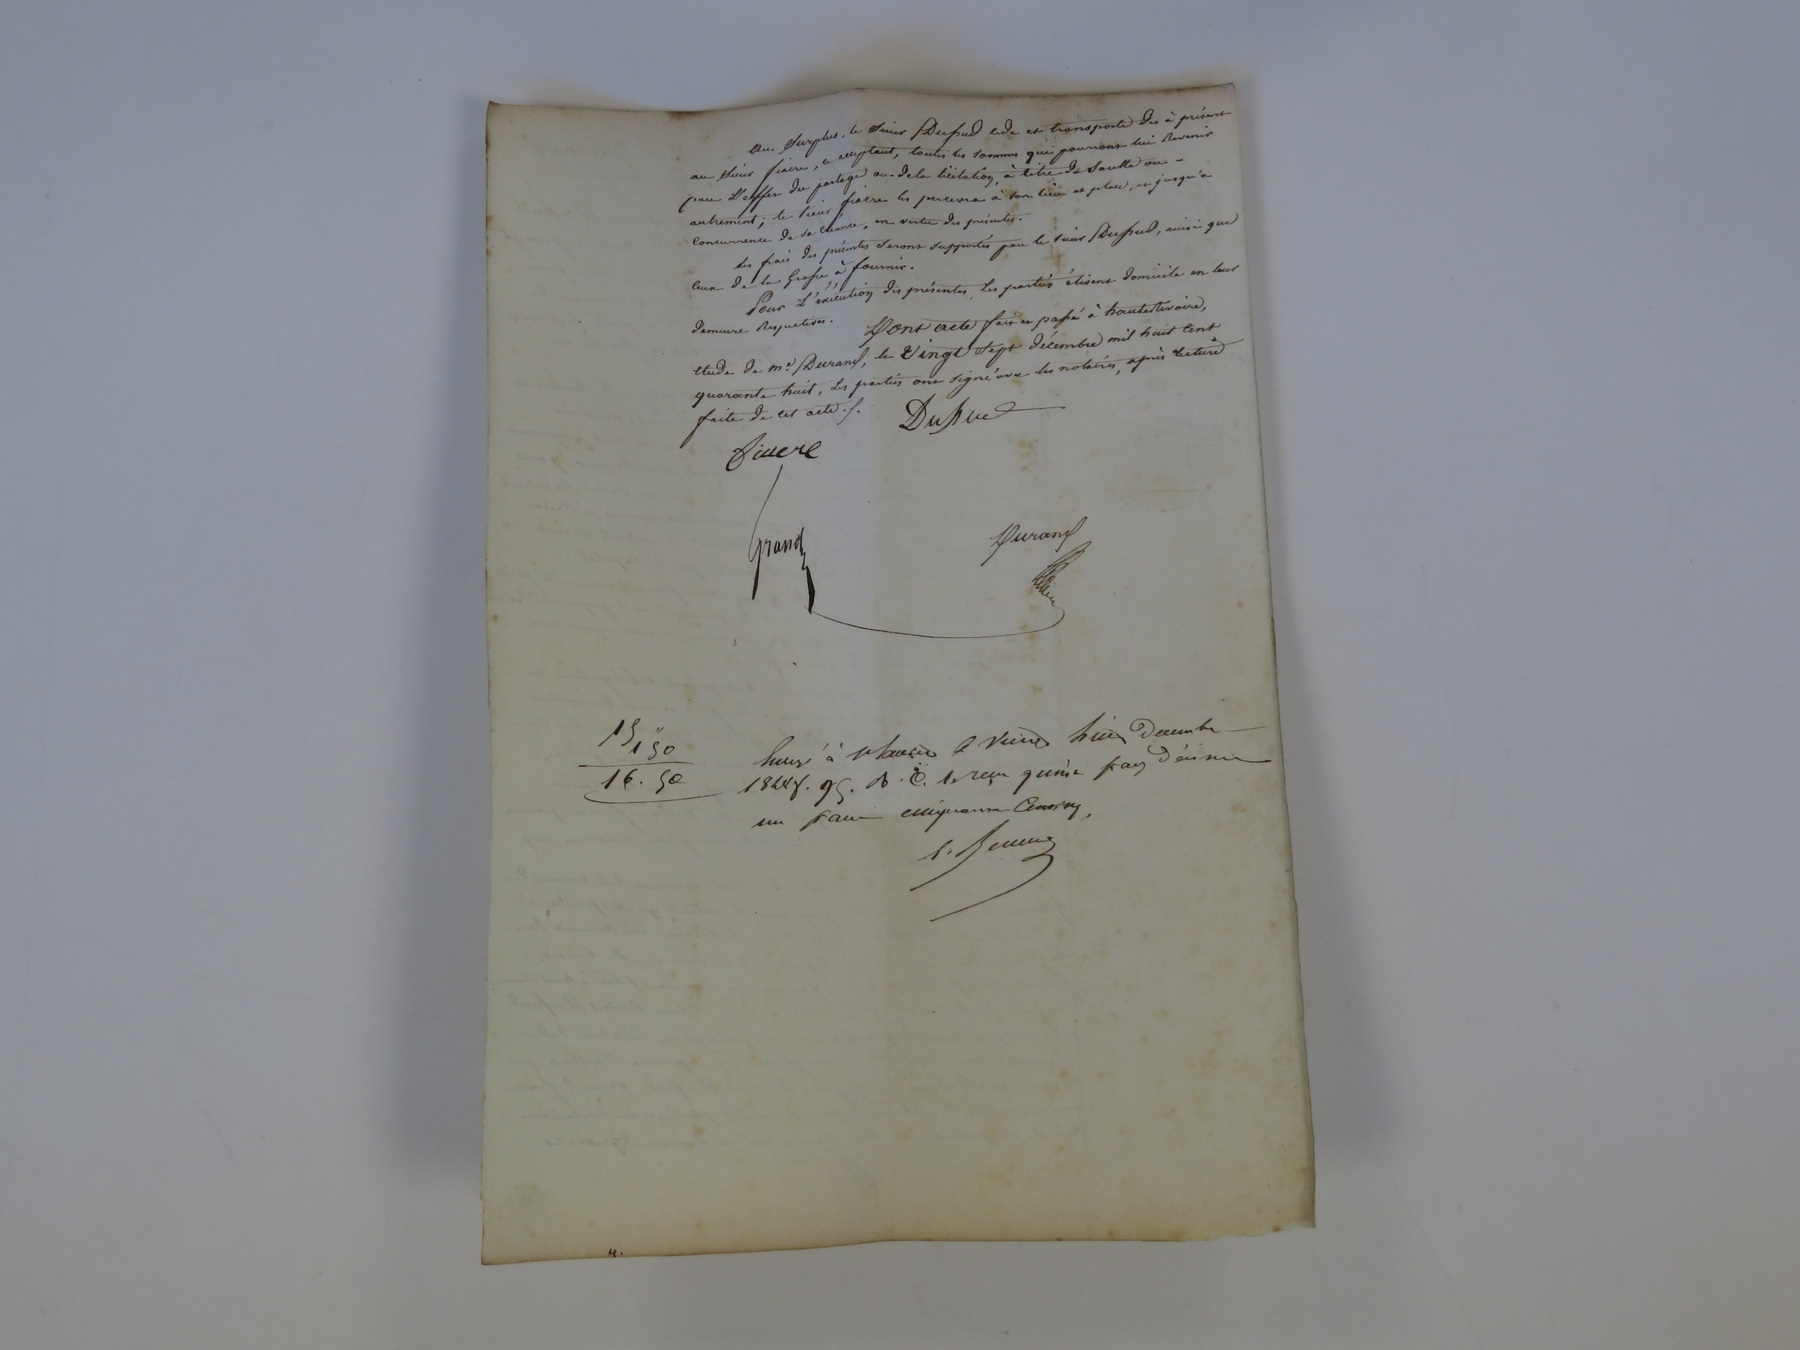 Au Surplus, le Sieur Dupud cede et transporte dès à présent
au Sieur fiaere, ce acceptant, toutes les sommes qui pourront lui Revenir
par L'effet du partage ou de la licitation, à titre de Soulte ou -
autrement; le Sieur fiaere les percevra à son lieu et place, et jusqu'à
Concurrence de sa Créance, en vertu des présentes.
Les frais des présentes seront supportés par le sieur Dupud, ainsi que
Ceux de la Grosse à fournir.
Pour L'éxécution des présentes, Les parties élisent domicile en leur
demeure Respectives.
Dont acte fait et passé à hauterivoire,
étude de me. Durand, le Vingt Sept décembre mil huit Cent
quarante huit, Les parties ont signé avec les notaires, après lecture
faite de cet acte./.
Dupuc
fiaere
Grand
Durand
15
1 50
16. 50
à St Laurent le Vingt huit Decembre
1848 f. 95. R. C. 1. reçu quinze francs décime
un franc cinquante Centimes,